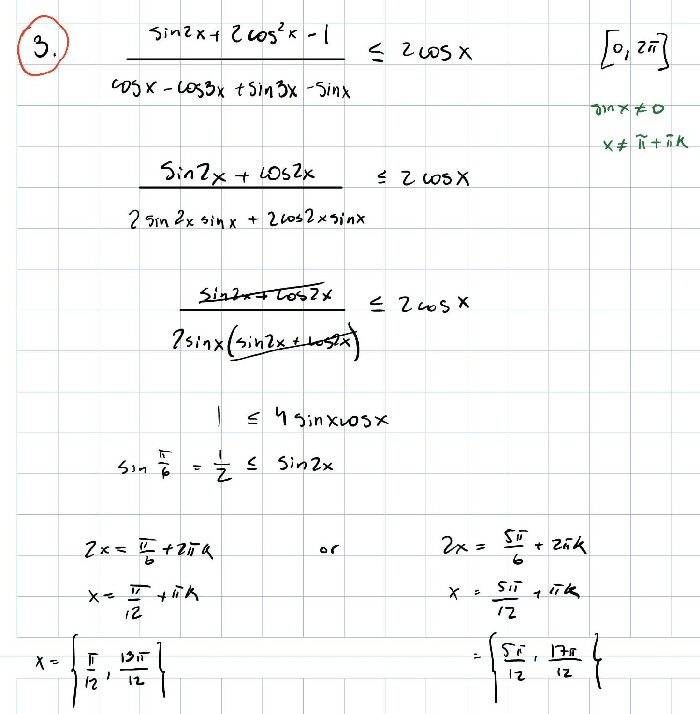 3. (sin2x + 2cos²x - 1) / (cosx - cos3x + sin3x - sinx) ≤ 2cosx [0, 2π]
sinx ≠ 0
x ≠ π + πk
(sin2x + cos2x) / (2sin2x sinx + 2cos2x sinx) ≤ 2cosx
(sin2x + cos2x) / (2sinx(sin2x + cos2x)) ≤ 2cosx
1 ≤ 4sinxcosx
sin π/6 = 1/2 ≤ sin2x
2x = π/6 + 2πk or 2x = 5π/6 + 2πk
x = π/12 + πk x = 5π/12 + πk
x = { π/12, 13π/12 } = { 5π/12, 17π/12 }